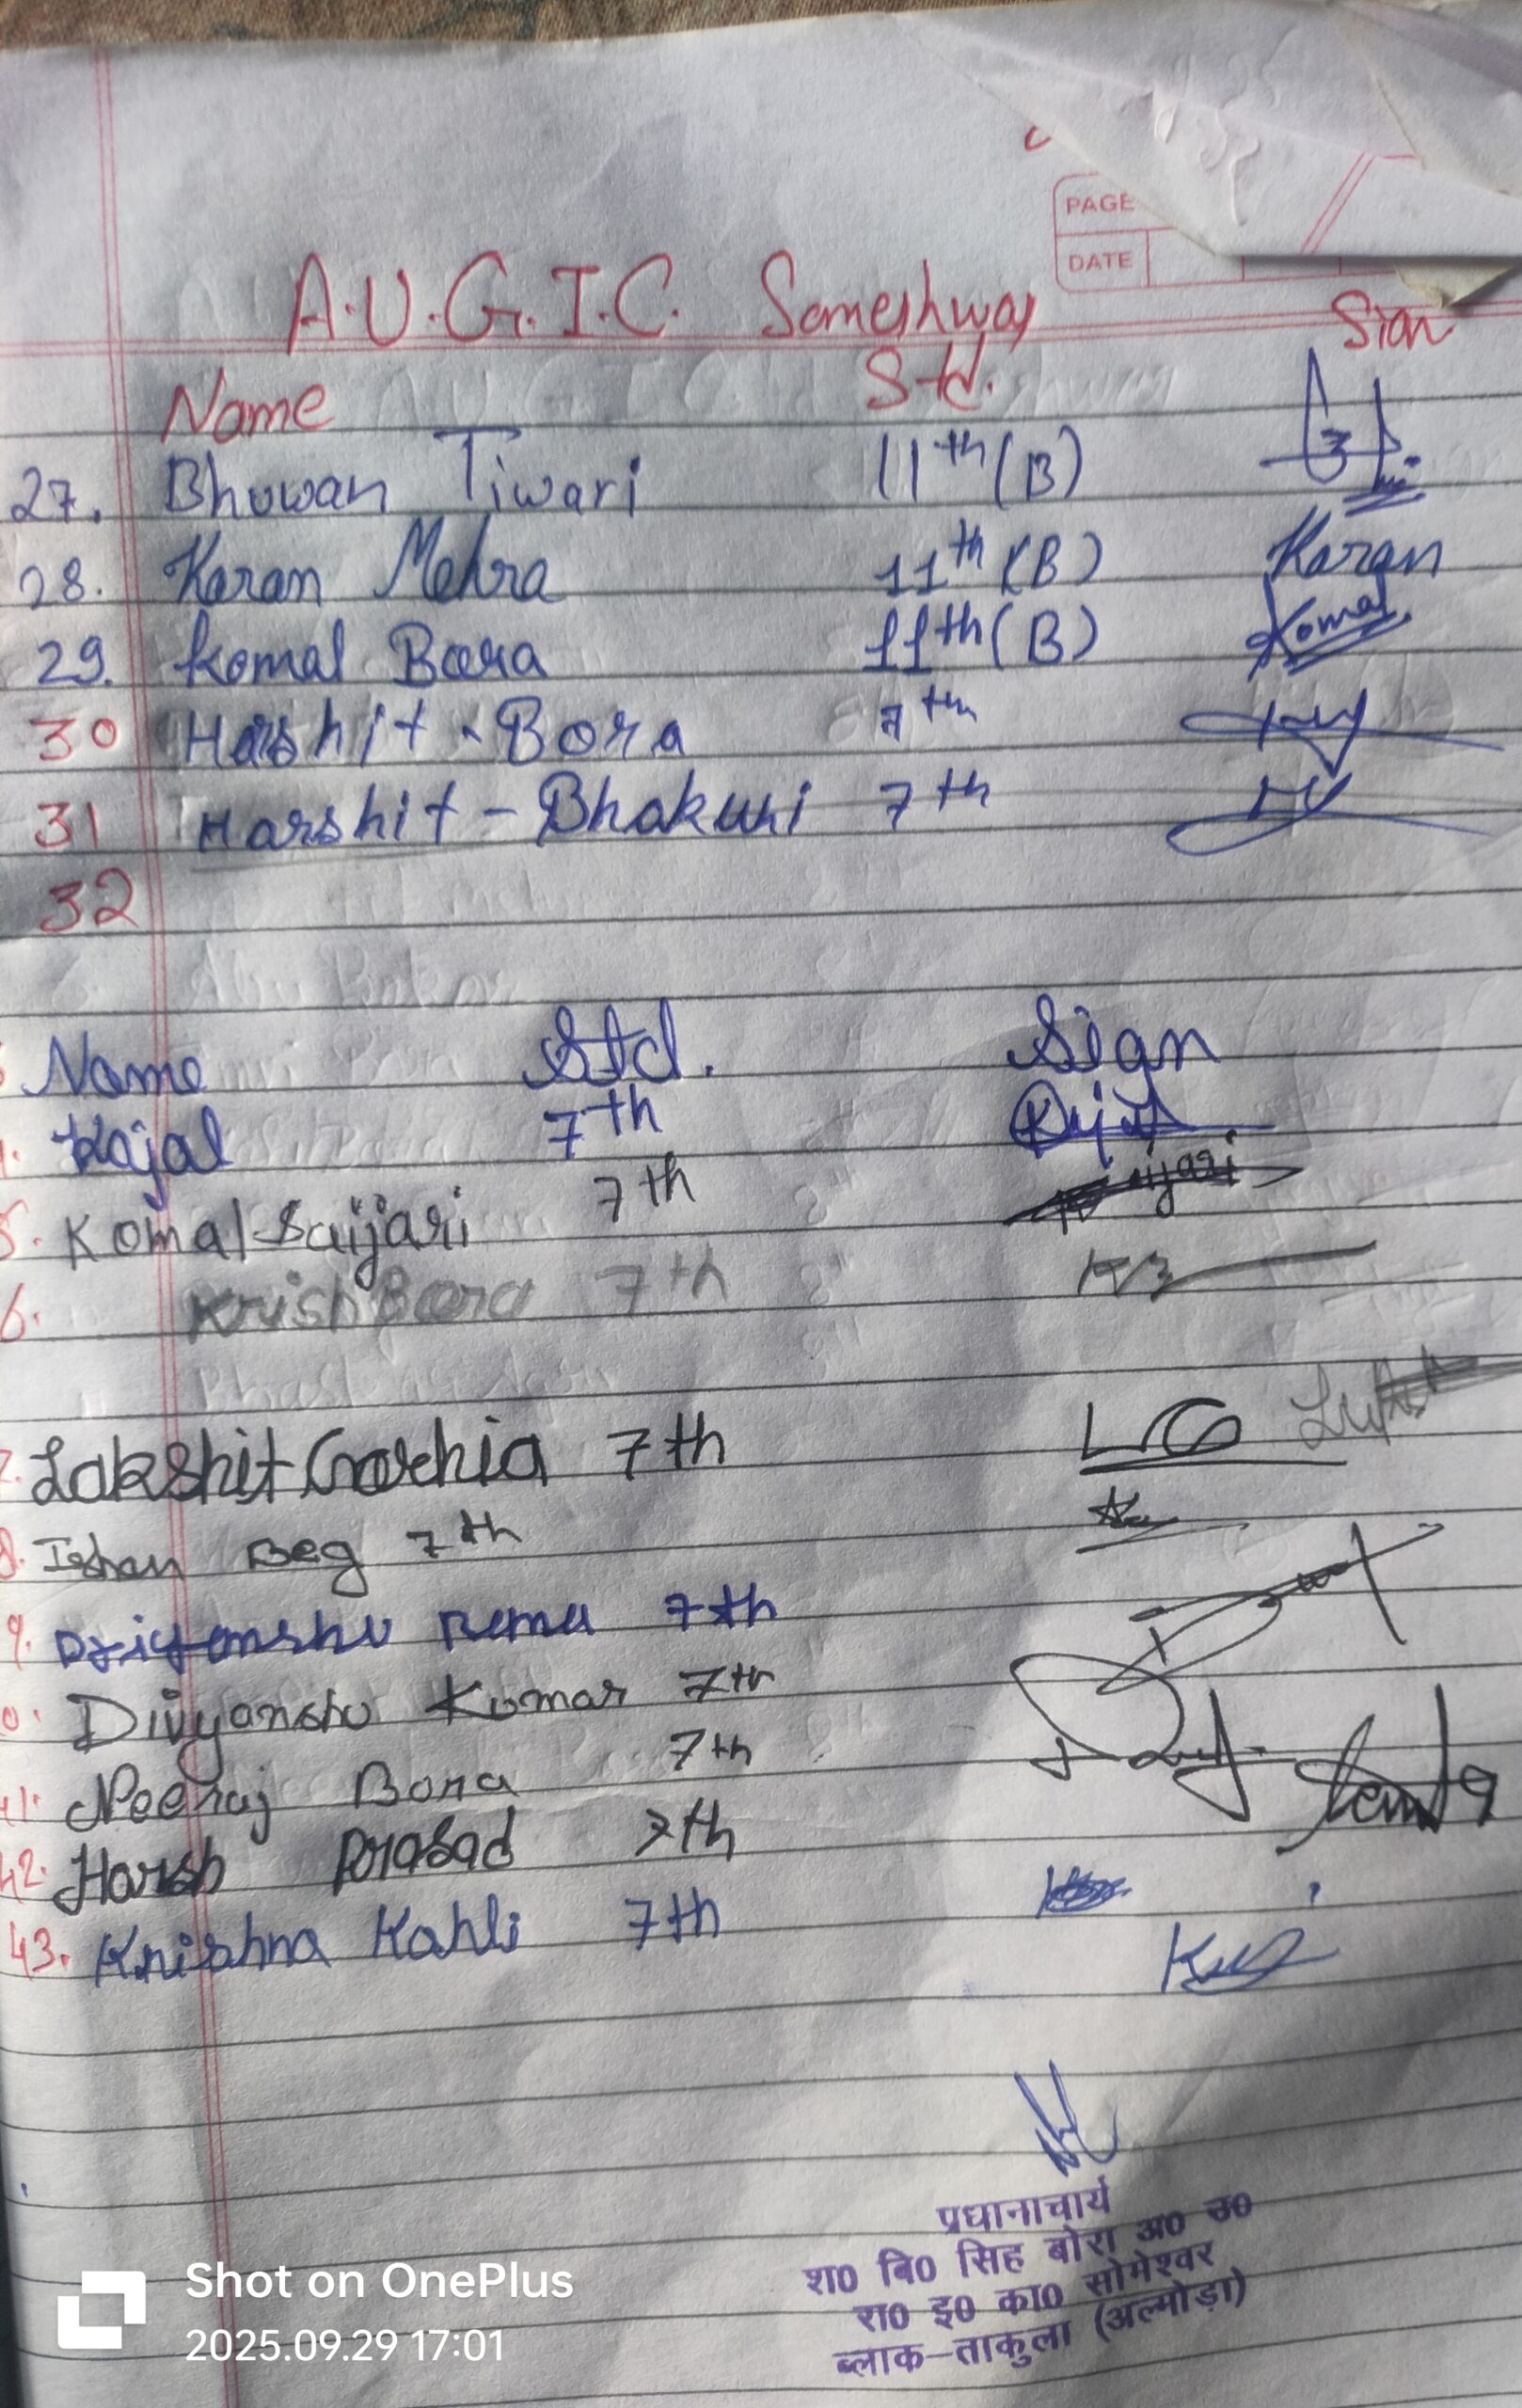 PAGE
DATE
A.U.G.I.C. Someshwar
Name Std. Sign
27. Bhuwan Tiwari 11th (B)
28. Karan Mehra 11th (B) Karan
29. Komal Bora 11th (B) Komal
30 Harshit - Bora 7th
31 Harshit - Bhakuni 7th
32
Name Std. Sign
Kajal 7th
5. Komal Saijari 7th
6. Krish Bora 7th KB
Lakshit 7th LG
8. Ishan Beg 7th
9. 7th
0. Divyanshu Kumar 7th
41. Neeraj Bora 7th
42. Harsh Prasad 7th
43. Krishna Kahli 7th
प्रधानाचार्य
श0 बि0 सिंह बोरा अ0 उ0
रा0 इ0 का0 सोमेश्वर
ब्लाक–ताकुला (अल्मोड़ा)
Shot on OnePlus
2025.09.29 17:01